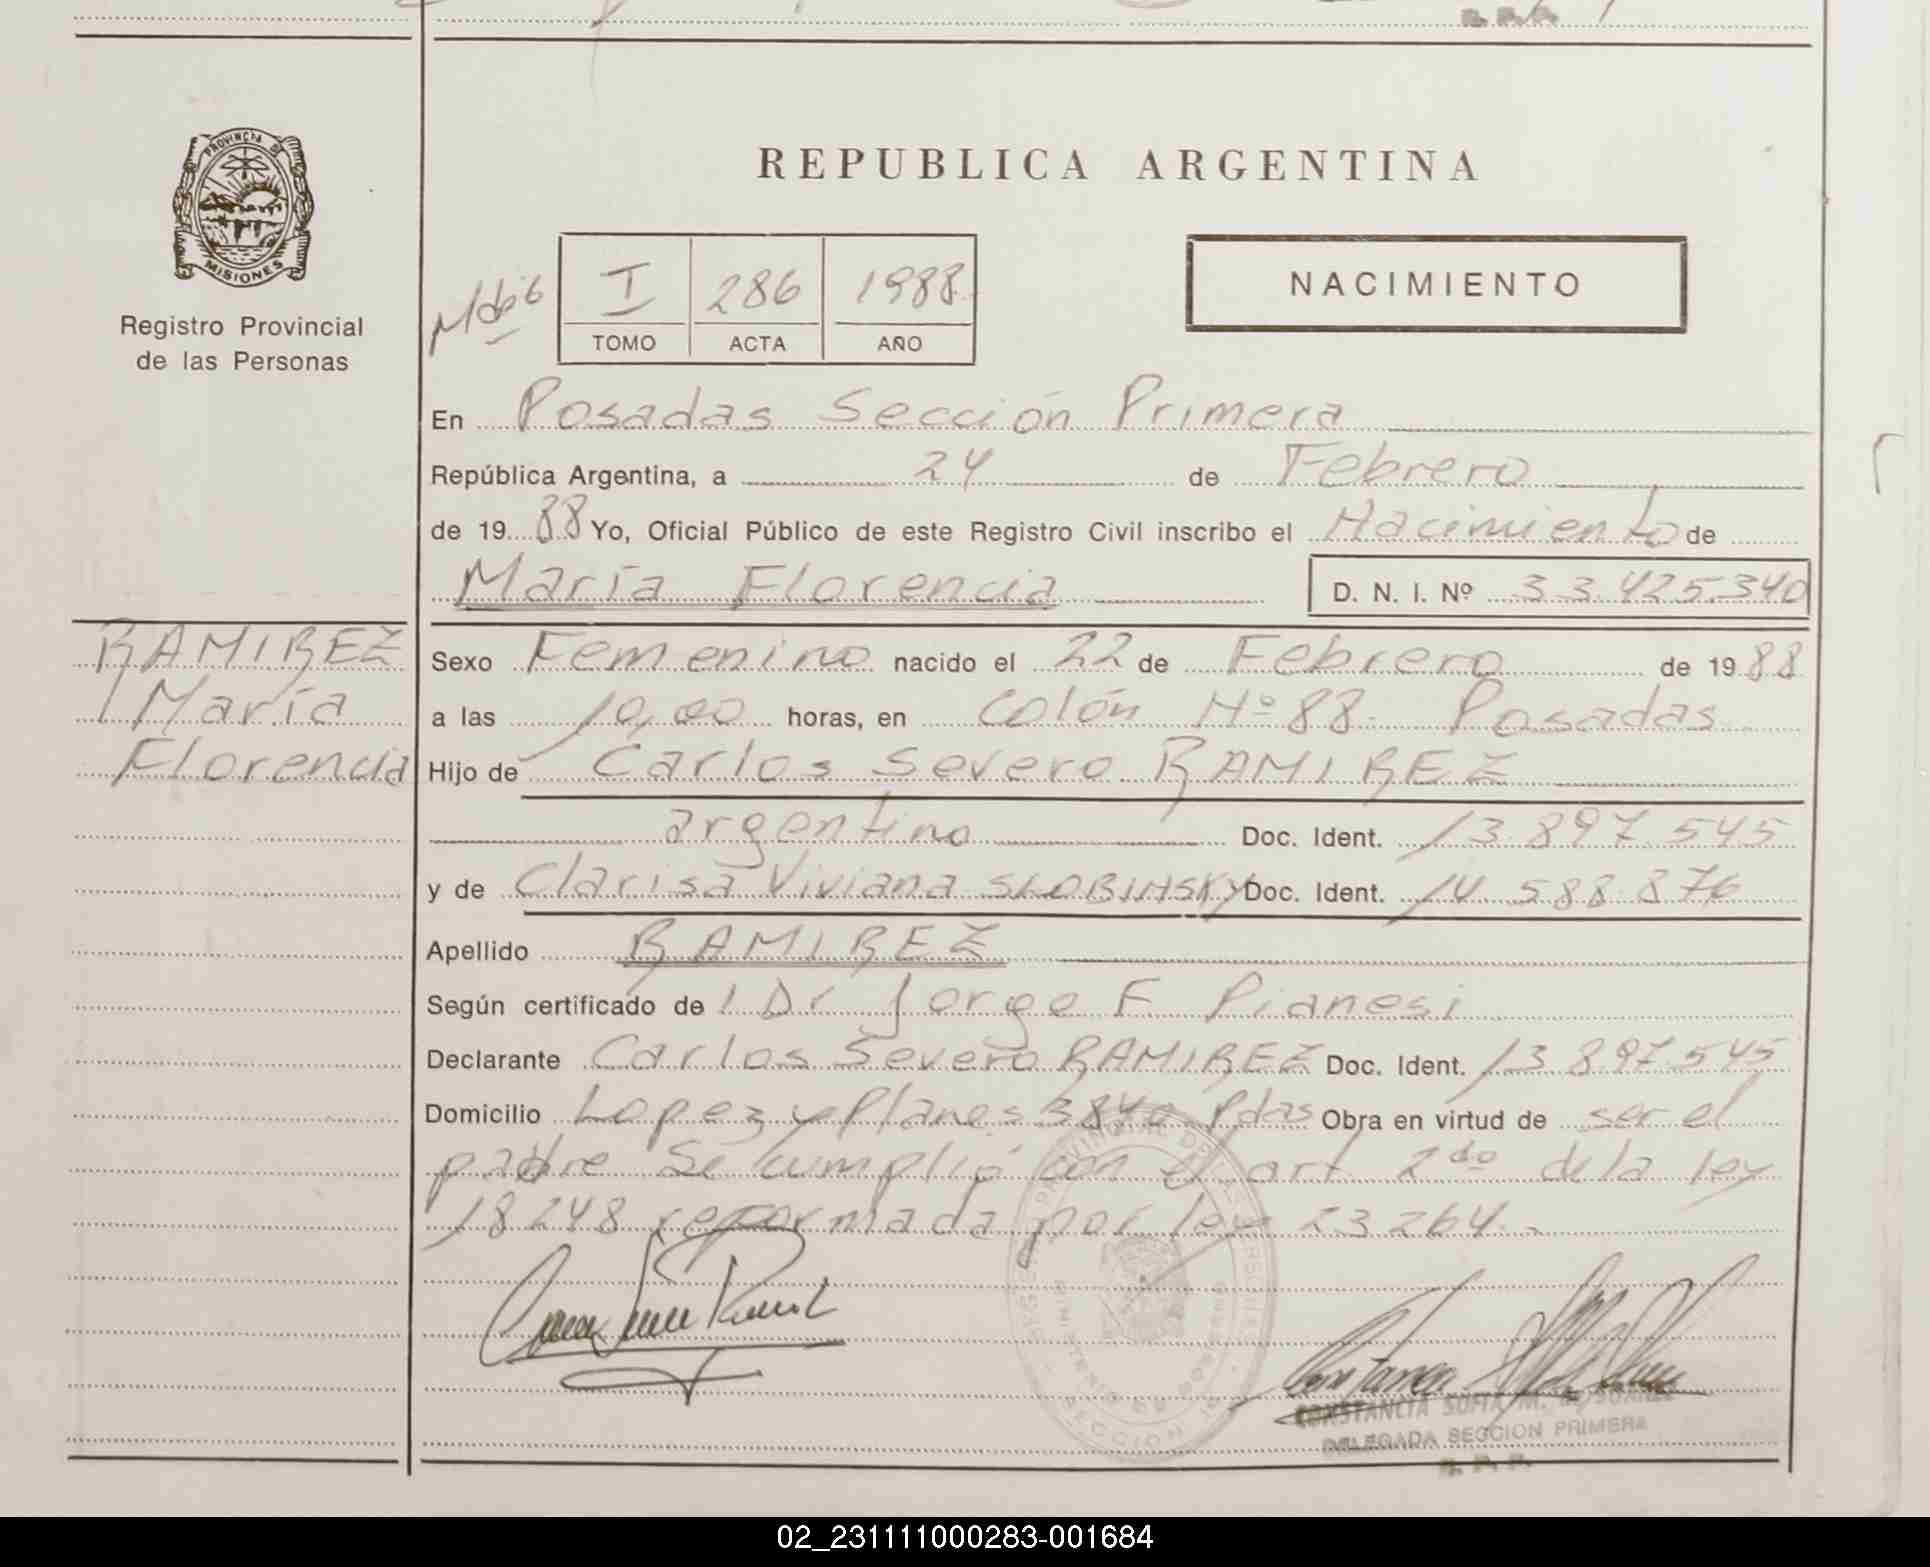 PROVINCIA DE
MISIONES
Registro Provincial
de las Personas
REPUBLICA ARGENTINA
I 286 1988
TOMO ACTA AÑO
NACIMIENTO
En Posadas Sección Primera
República Argentina, a 24 de Febrero
de 1988 Yo, Oficial Público de este Registro Civil inscribo el Nacimiento de
María Florencia D. N. I. Nº 33.425.340
RAMIREZ
María
Florencia
Sexo Femenino nacido el 22 de Febrero de 1988
a las 10,00 horas, en Colón Nº 88. Posadas
Hijo de Carlos Severo RAMIREZ
argentino Doc. Ident. 13.897.545
y de Clarisa Viviana SLOBINSKY Doc. Ident. 14.588.876
Apellido RAMIREZ
Según certificado de Dr Jorge F Pianesi
Declarante Carlos Severo RAMIREZ Doc. Ident. 13.897.545
Domicilio Lopez y Planes 3840 Pdas Obra en virtud de ser el
padre Se cumplió con el art 2do de la ley
18248 reformada por ley 23264.-
CONSTANCIA SOFIA M. de SUAREZ
DELEGADA SECCION PRIMERA
R. P. P.
02_231111000283-001684